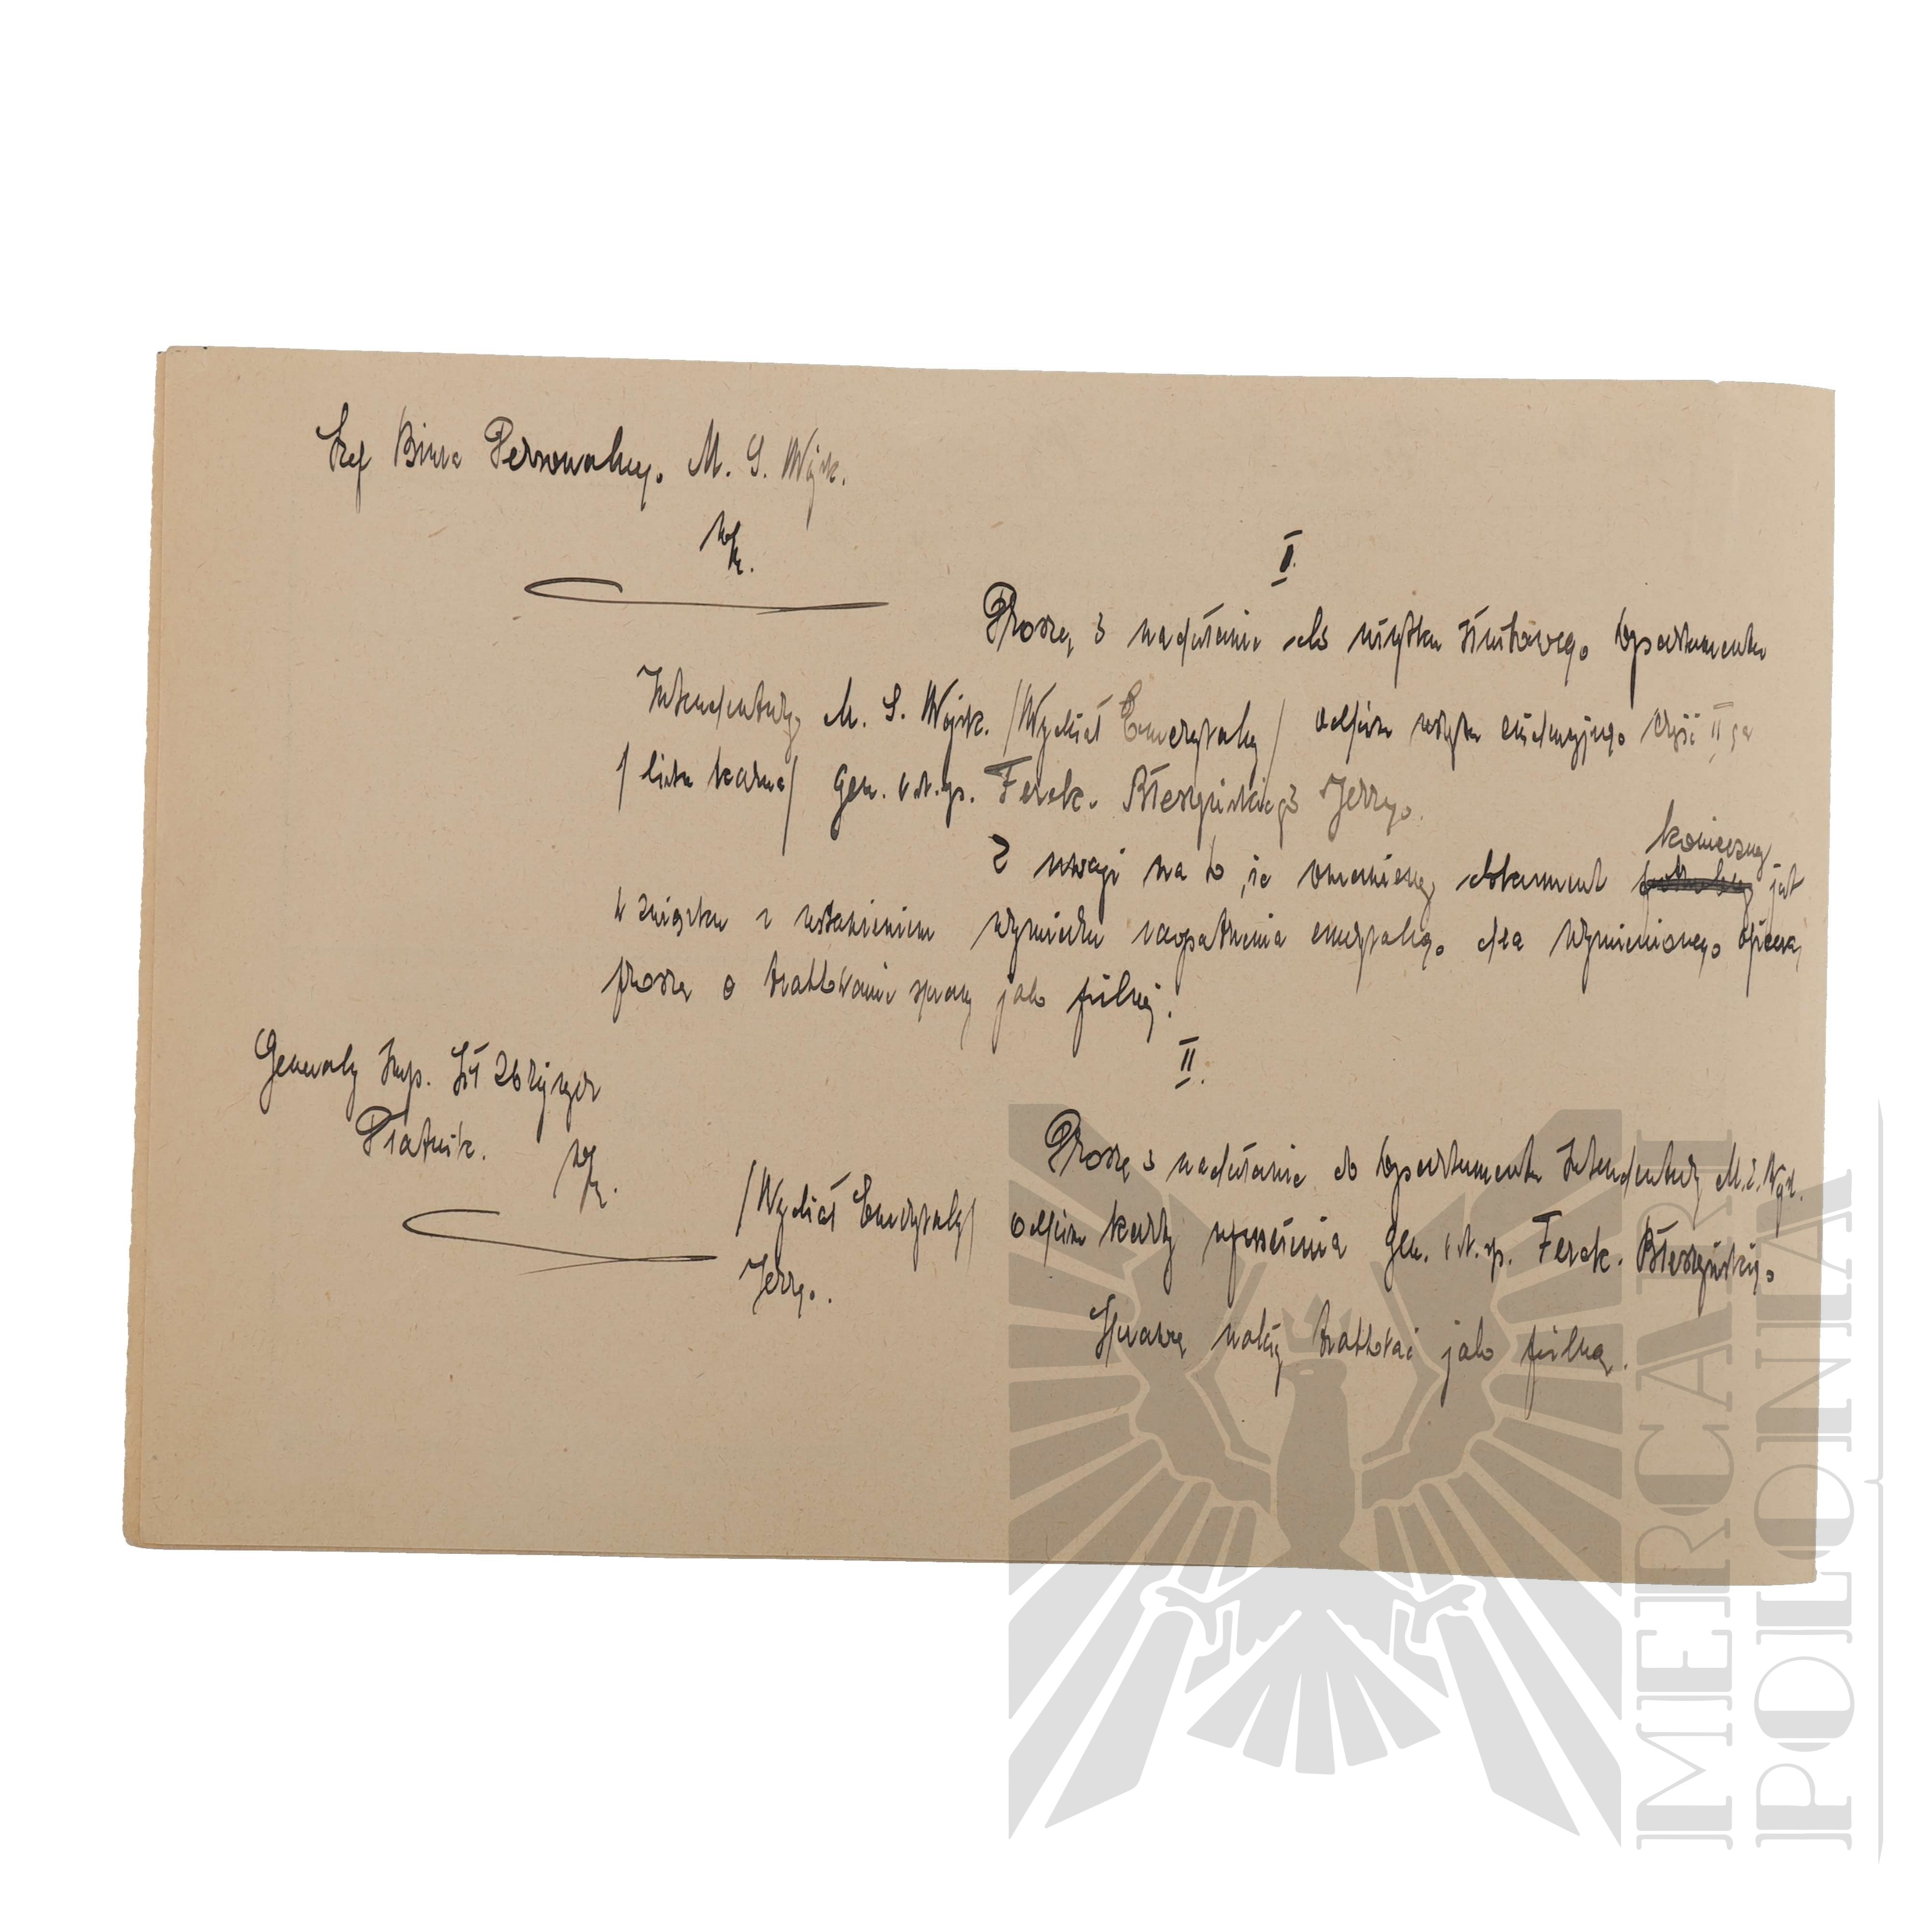 Szef Biura Personalneg. M. S. Wojsk.
w/m.
I.
Proszę o nadesłanie do użytku służbowego Departamentu
Intendentury M. S. Wojsk. /Wydział Emerytalny/ odpisu zeszytu ewidencyjnego część II ga
/ lista karna/ gen. Ferek. Błeszyńskiego Jerzego.
Z uwagi na to, że dokument konieczny jest
w związku z ustaleniem wymiaru zaopatrzenia emerytalnego dla wymienionego oficera,
proszę o traktowanie sprawy jako pilnej.
Generalny Insp. Sił Zbrojnych
Płatnik.
w/m.
II.
Proszę o nadesłanie do Departamentu Intendentury M. S. Wojsk.
/Wydział Emerytalny/ odpisu karty gen. Ferek. Błeszyńskiego
Jerzego.
Sprawę należy traktować jako pilną.
MERCARI
POLONIA